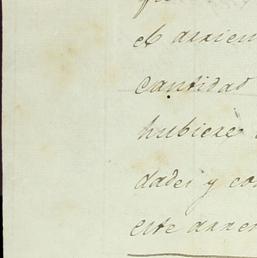 el arrien
cantidad
hubiere
dades y con
este arren